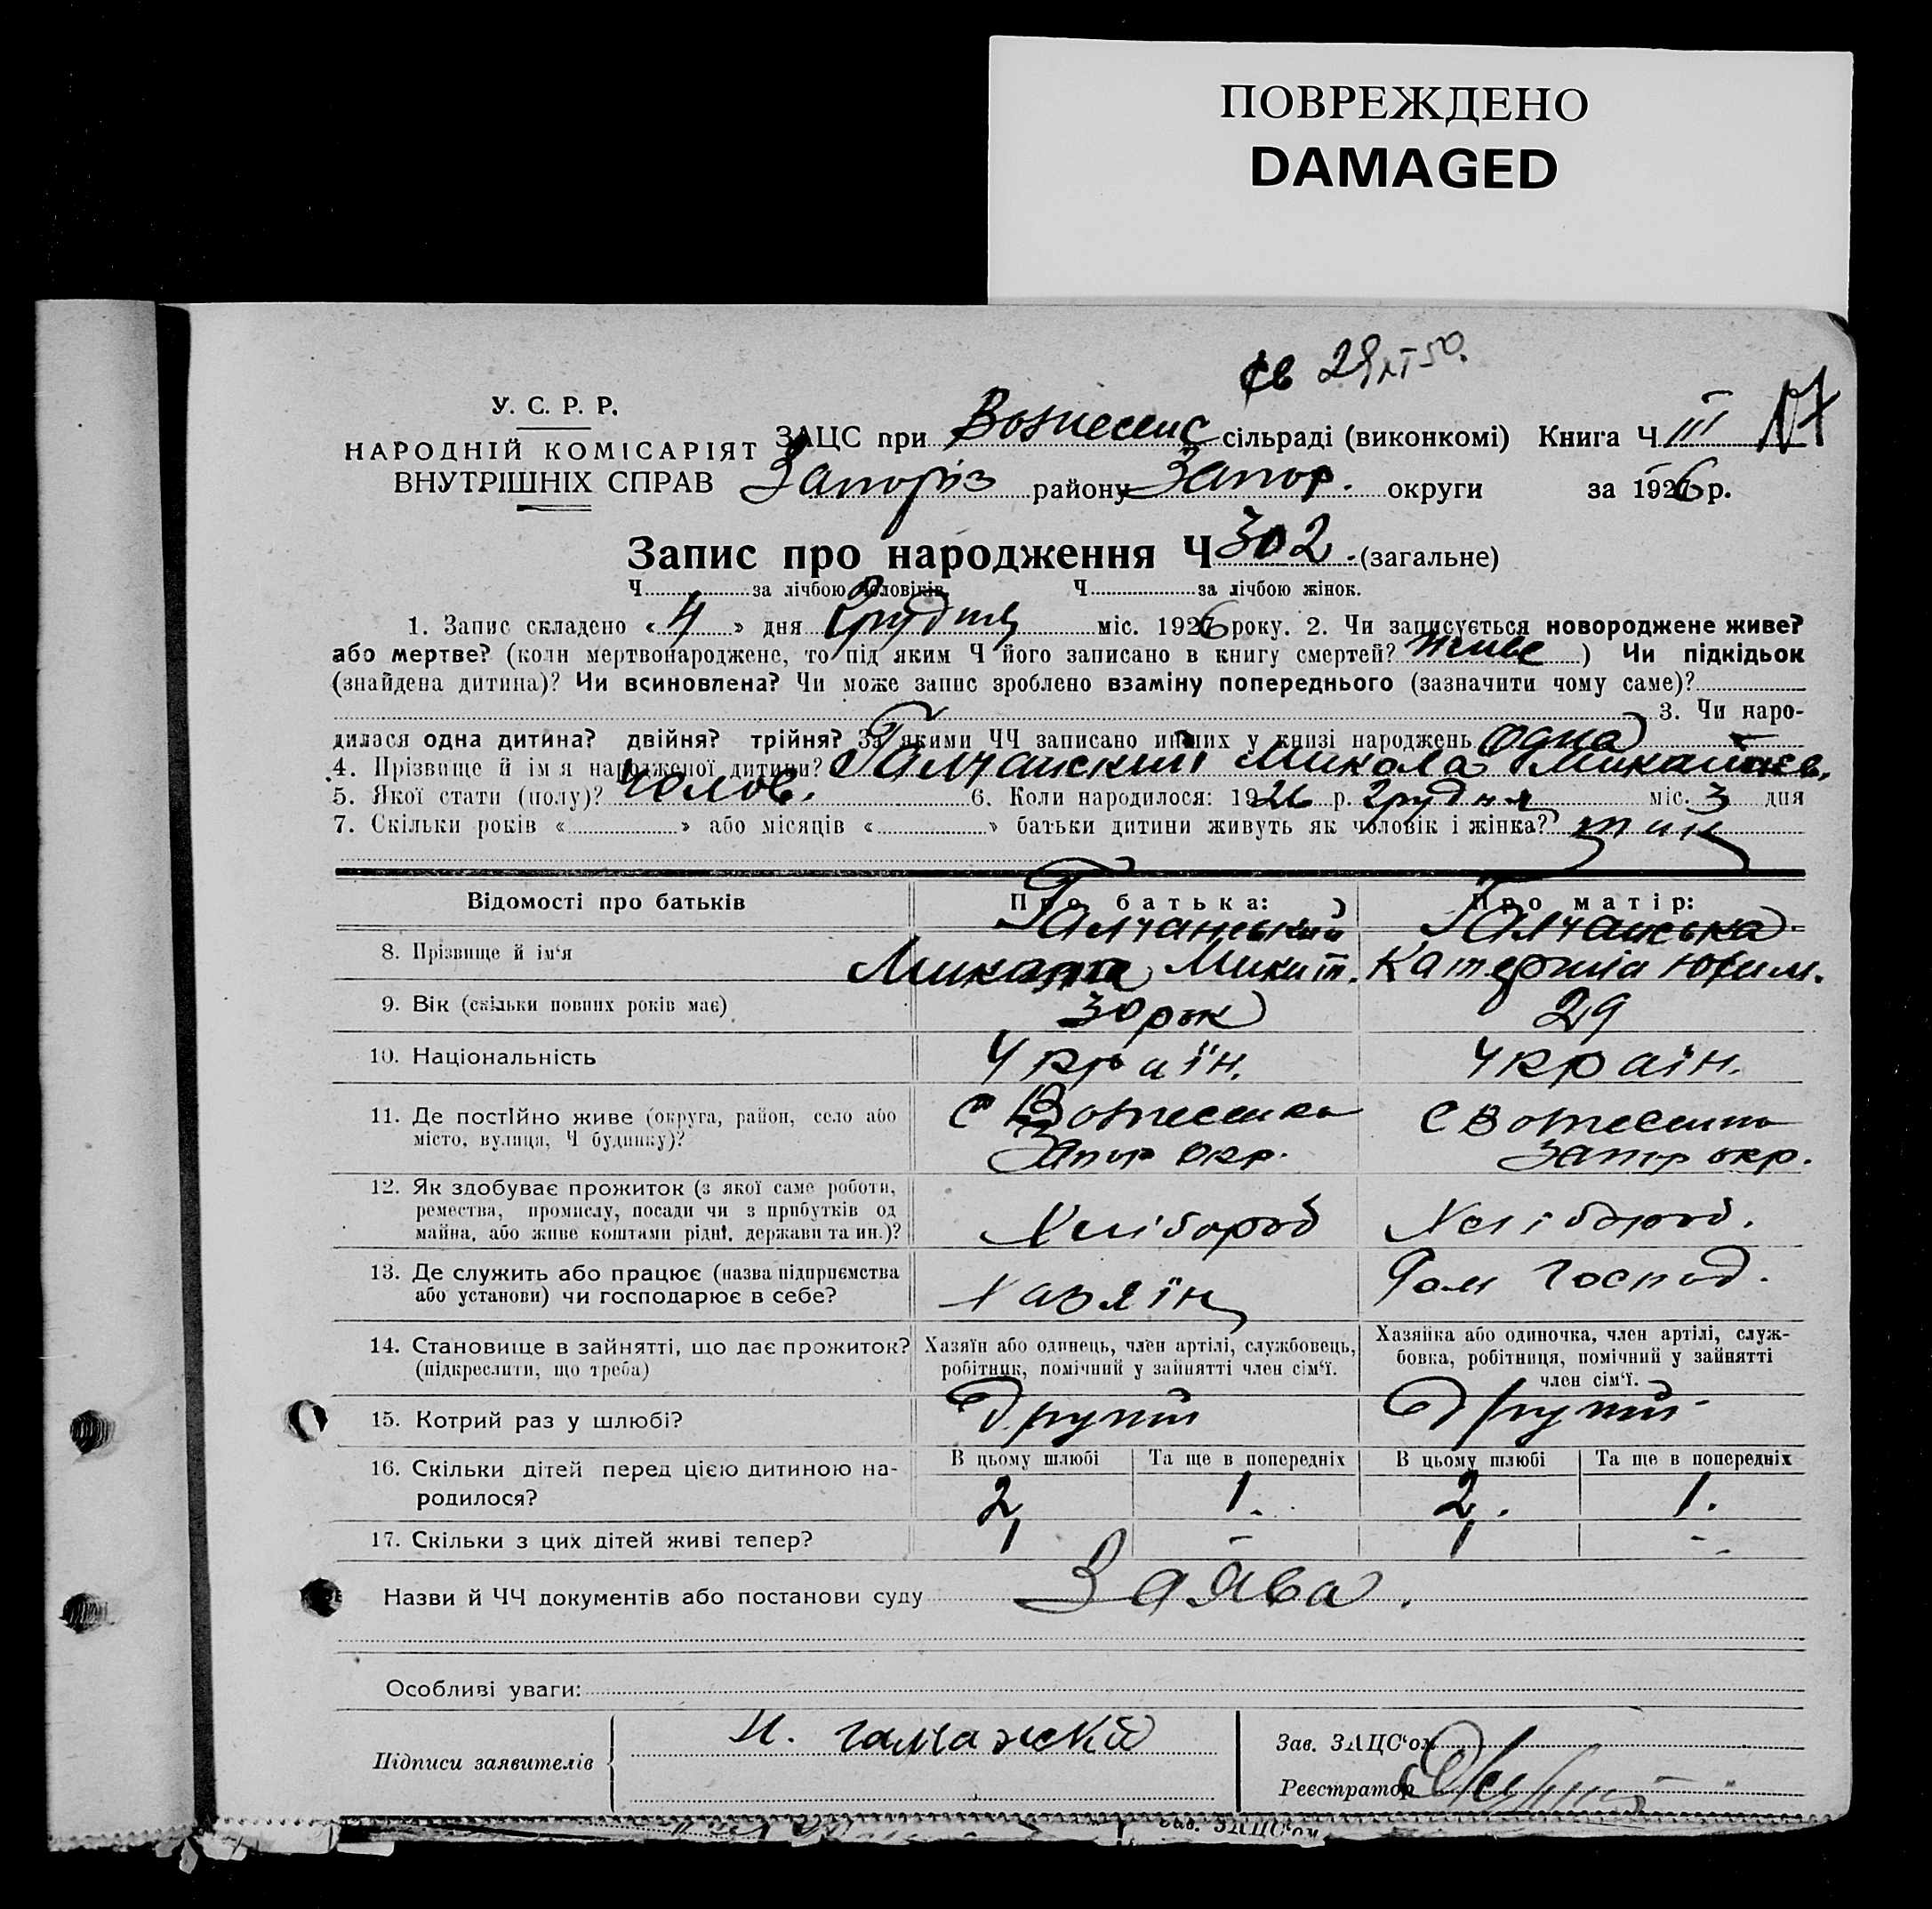 ПОВРЕЖДЕНО
DAMAGED
св 29
У. С. Р. Р.
НАРОДНІЙ КОМІСАРІЯТ
ВНУТРІШНІХ СПРАВ
ЗАЦС при Вознесенс сільраді (виконкомі) Книга Ч III
Запоріз району Запор. округи за 1926 р.
Запис про народження Ч 302. (загальне)
Ч за лічбою чоловіків. Ч за лічбою жінок.
1. Запис складено «4» дня Грудня міс. 1926 року. 2. Чи записується новороджене живе?
або мертве? (коли мертвонароджене, то під яким Ч його записано в книгу смертей? живе) Чи підкідьок
(знайдена дитина)? Чи всиновлена? Чи може запис зроблено взаміну попереднього (зазначити чому саме)?
3. Чи наро-
дилася одна дитина? двійня? трійня? За якими ЧЧ записано инших у книзі народжень одна
4. Прізвище й ім'я народженої дитини? Галчанский Микола Микайлов.
5. Якої стати (полу)? Чолов. 6. Коли народилося: 1926 р. Грудня міс. 3 дня
7. Скільки років « » або місяців « » батьки дитини живуть як чоловік і жінка?
Відомості про батьків Про батька: Про матір:
Галчанський Галчанська
8. Прізвище й ім'я Микит. Катерина Юхим.
9. Вік (скільки повних років має) 30 рок 29
10. Національність Україн. Україн.
11. Де постійно живе (округа, район, село або місто, вулиця, Ч будинку)?
С Вознесенка С Вознесенка
Запор Окр. Запор окр.
12. Як здобуває прожиток (з якої саме роботи,
ремества, промислу, посади чи з прибутків од
майна, або живе коштами рідні, держави та ин.)? Хлібороб Хлібороб.
13. Де служить або працює (назва підприємства
або установи) чи господарює в себе? Хазяїн Дом Господ.
14. Становище в зайнятті, що дає прожиток?
(підкреслити, що треба)
Хазяїн або одинець, член артілі, службовець,
робітник, помічний у зайнятті член сім'ї.
Хазяйка або одиночка, член артілі, служ-
бовка, робітниця, помічний у зайнятті
член сім'ї.
15. Котрий раз у шлюбі? другий другий
В цьому шлюбі Та ще в попередніх В цьому шлюбі Та ще в попередніх
16. Скільки дітей перед цією дитиною на-
родилося? 2 1. 2. 1.
17. Скільки з цих дітей живі тепер? 1 – 1 –
Назви й ЧЧ документів або постанови суду Заява.
Особливі уваги:
Підписи заявителів
Зав. ЗАЦС'ом
Реєстратор
Зав. ЗАЦС'ом